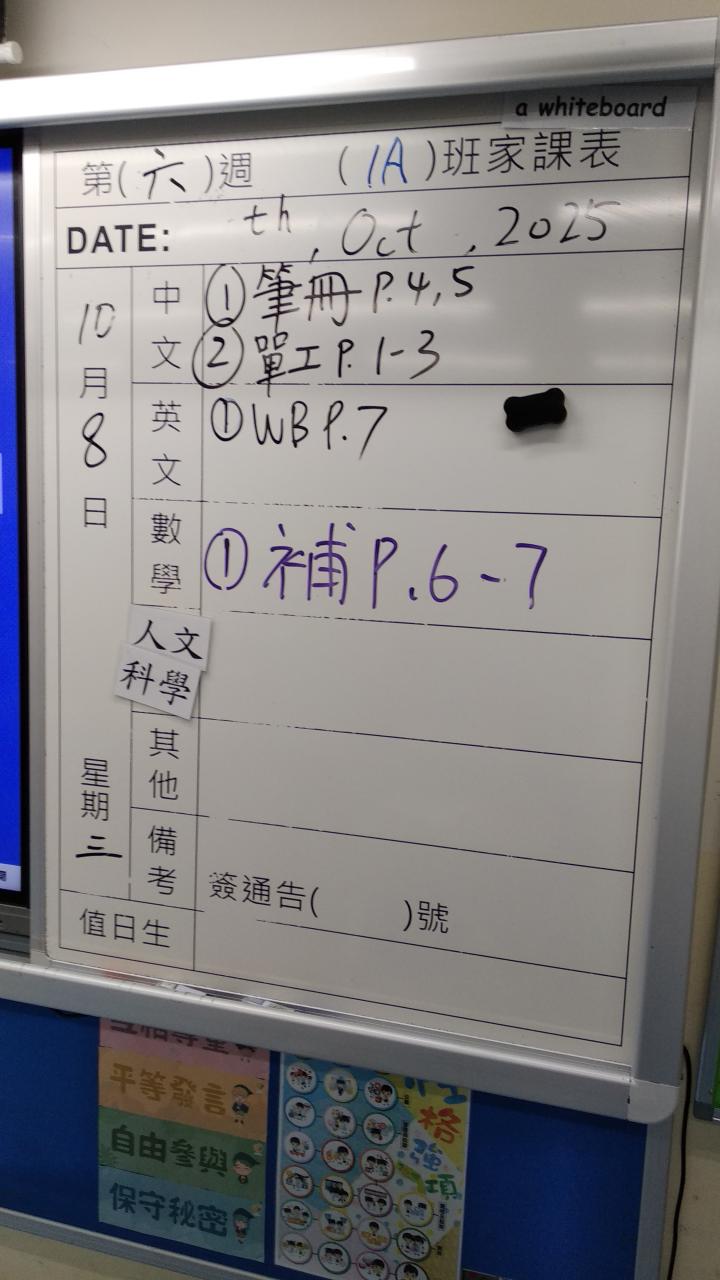 a whiteboard
第(六)週 (1A)班家課表
DATE: th, Oct, 2025
10月8日
星期三
中文
①筆冊P.4,5
②單工P.1-3
英文
①WB P.7
數學
①補P.6-7
人文
科學
其他
備考
簽通告( )號
值日生
平等發言
自由參與
保守秘密
性格強項